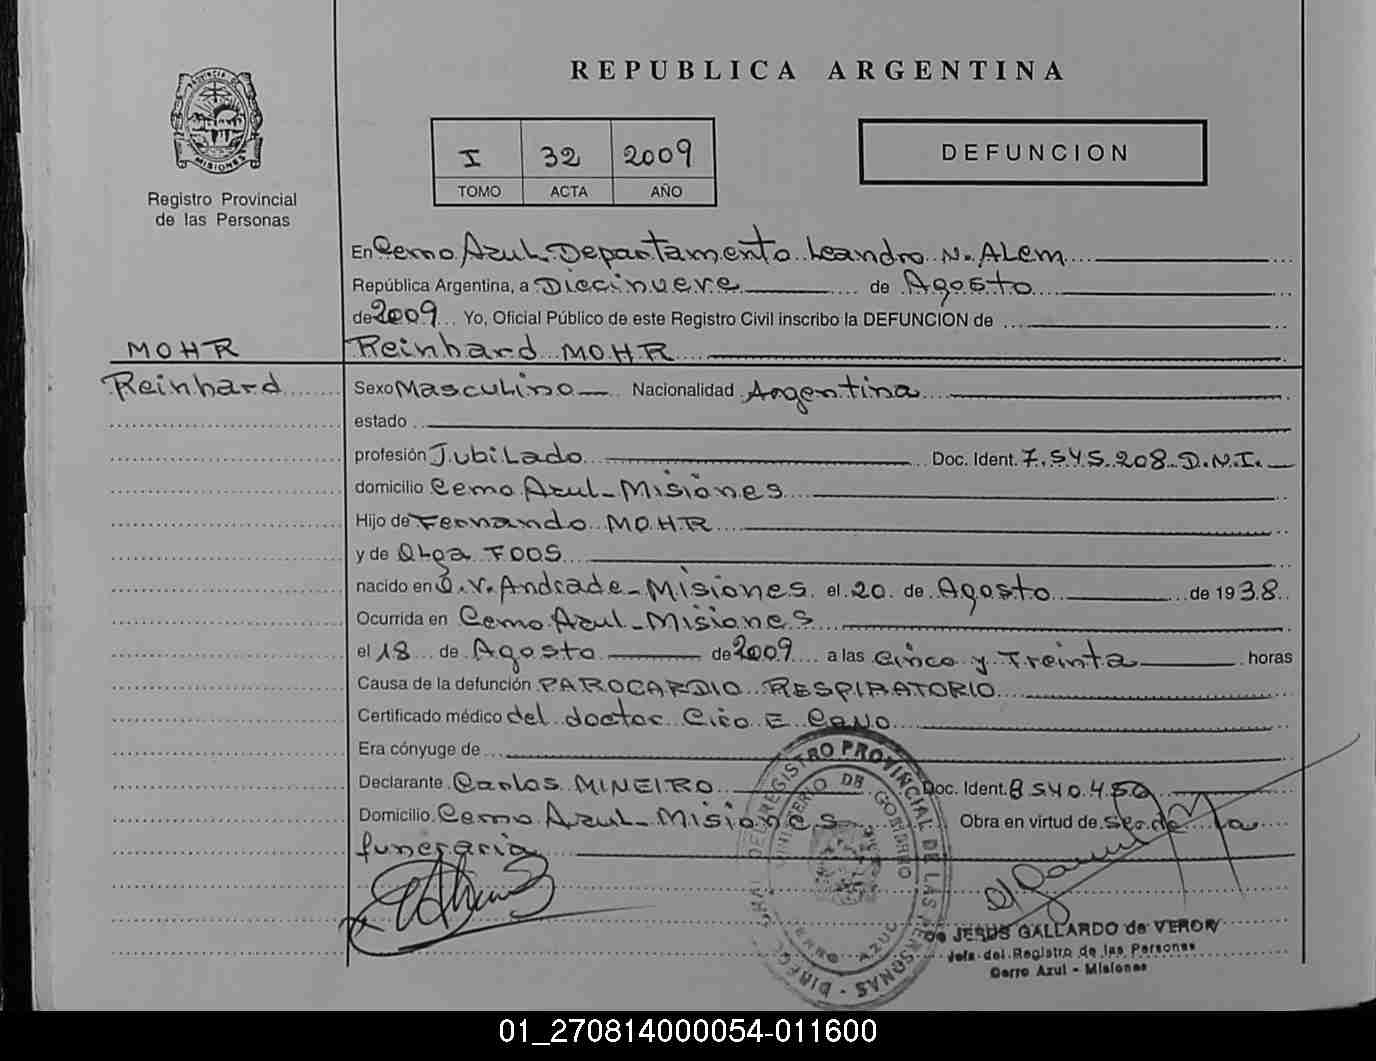 REPUBLICA ARGENTINA
PROVINCIA DE
MISIONES
Registro Provincial
de las Personas
I 32 2009
TOMO ACTA AÑO
DEFUNCION
En Cerro Azul. Departamento Leandro N. ALem
República Argentina, a Diecinueve de Agosto
de 2009 Yo, Oficial Público de este Registro Civil inscribo la DEFUNCION de
MOHR
Reinhard MOHR
Reinhard
Sexo Masculino Nacionalidad Argentina
estado
profesión JubiLado Doc. Ident. 7.545.208 D.N.I.
domicilio Cerro Azul - Misiones
Hijo de Fernando MOHR
y de Olga FOOS
nacido en O.V. Andrade - Misiones el 20 de Agosto de 1938
Ocurrida en Cerro Azul - Misiones
el 18 de Agosto de 2009 a las Cinco y Treinta horas
Causa de la defunción PAROCARDIO RESPIRATORIO
Certificado médico del doctor Ciro E Cano
Era cónyuge de
Declarante Carlos MINEIRO Doc. Ident. 8540.450
Domicilio Cerro Azul - Misiones Obra en virtud de ser de la
funeraria
REGISTRO PROVINCIAL DE LAS PERSONAS
MINISTERIO DE GOBIERNO
CERRO AZUL
de JESUS GALLARDO de VERON
Jefa del Registro de las Personas
Cerro Azul - Misiones
01_270814000054-011600